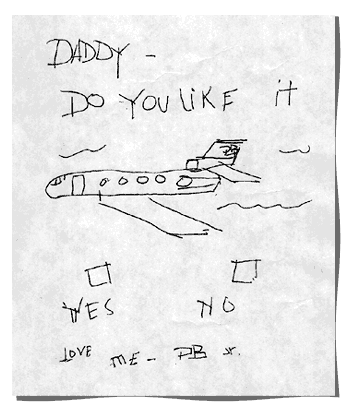 DADDY -
DO YOU LIKE it
YES NO
LOVE ME - DB Jr.